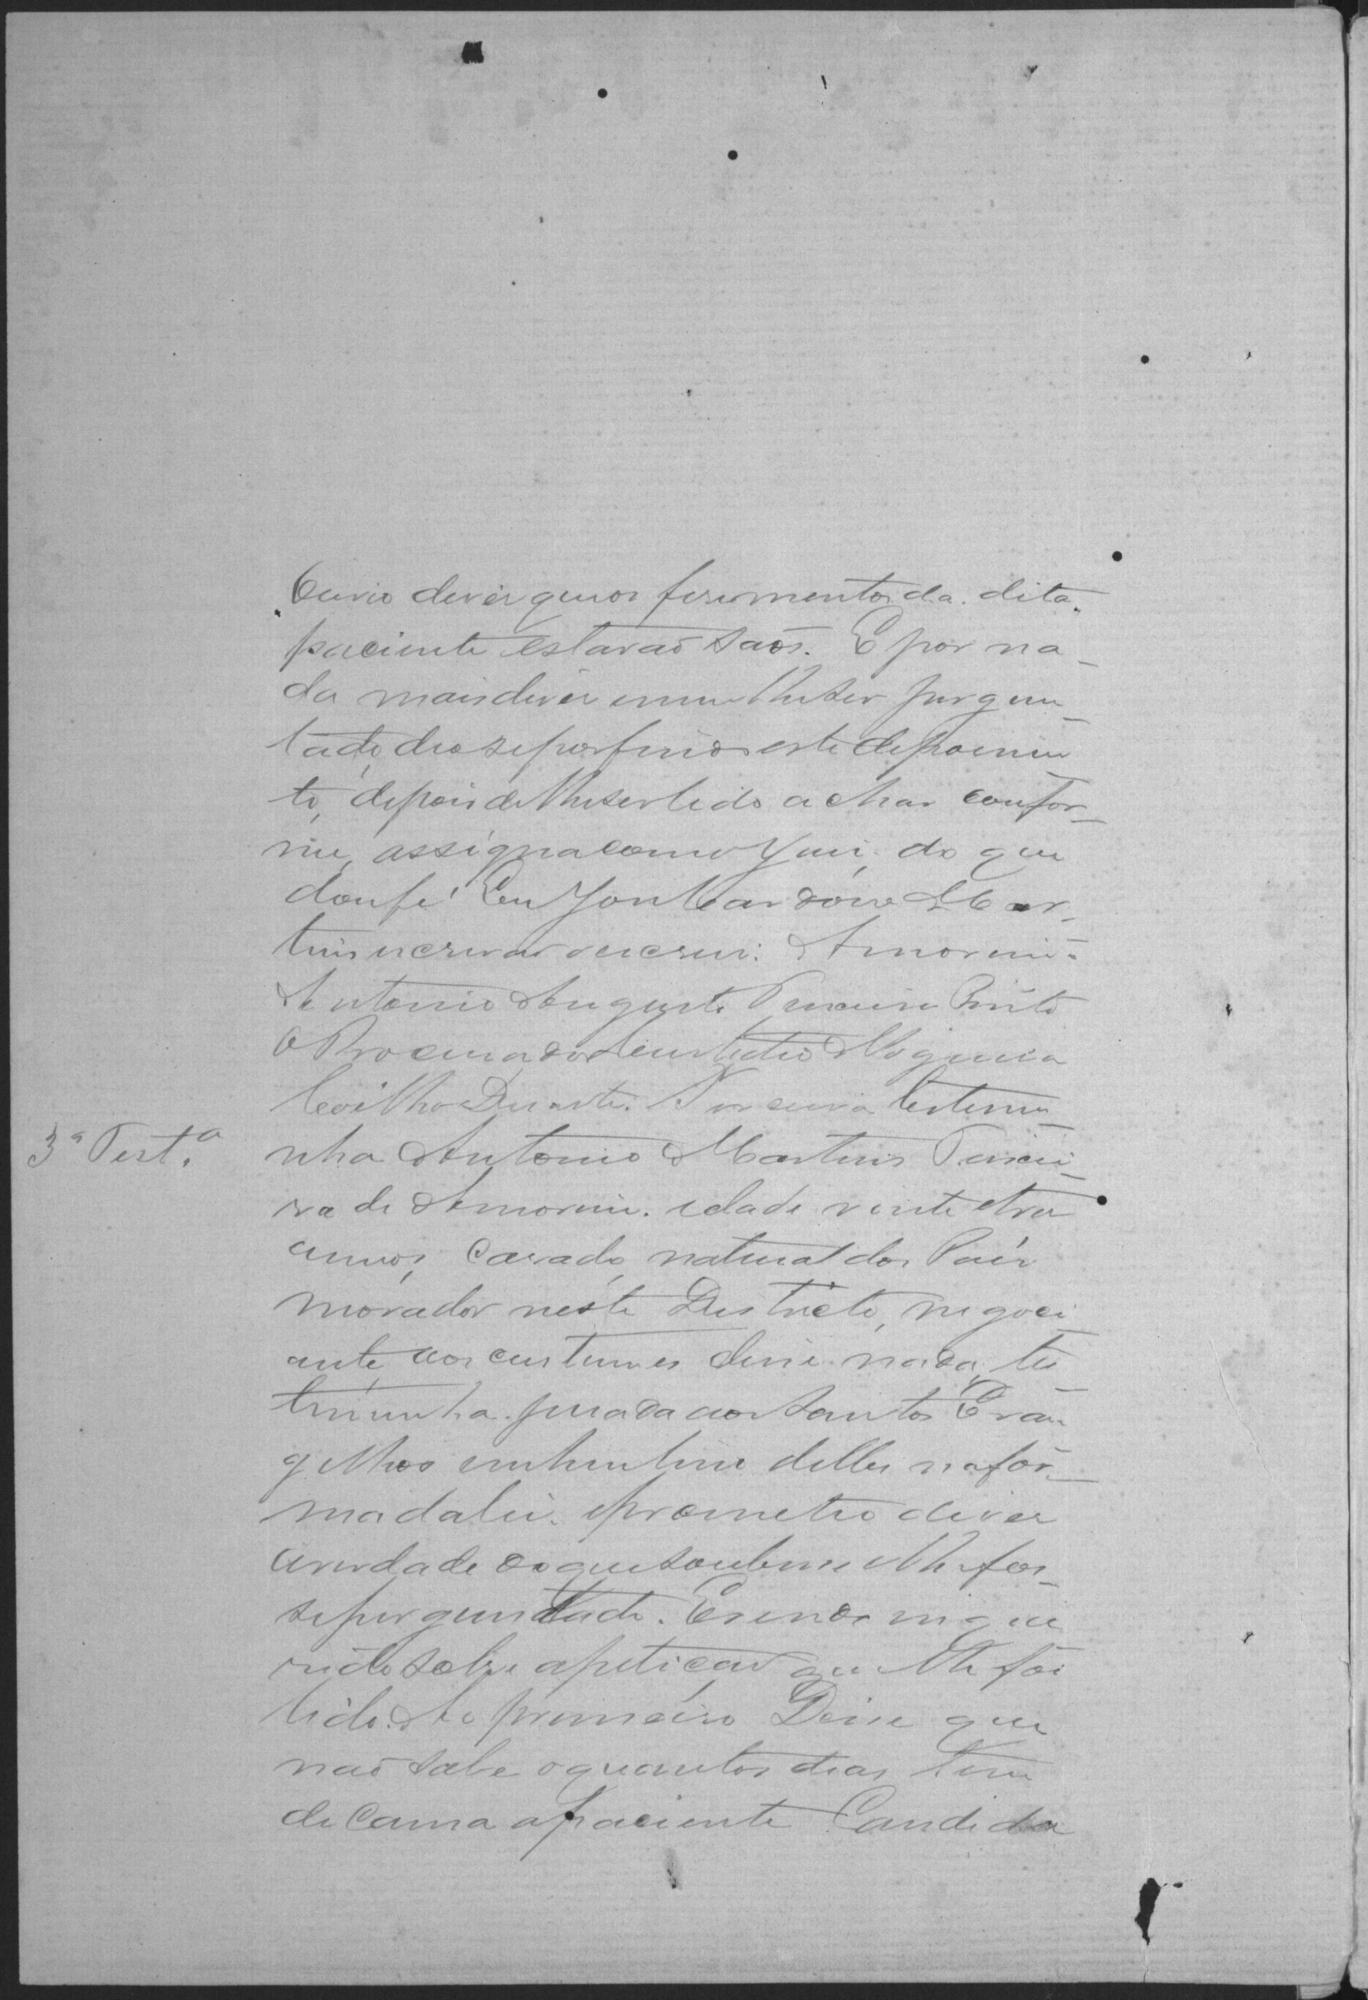 Ouvio dizer que os ferimentos da dita
paciente estavaõ saõs. E por na-
da mais dizer e nem lhe ser pergun-
tado, deo se por findo este depoimen-
to, depois de lhe ser lido achar confor-
me, assigna com o Juiz, do que
dou fé. Eu José Cardoso Mar-
tins escrivaõ o escrevi. Amorim.
Antonio Augusto Pereira Pinto
O Procurador Custodio Nogueira
Coelho Duarte. Terceira testemu-
3ª Test.ª nha Antonio Martins Perei-
ra de Amorim, idade vinte e tres
annos, casado, natural do Paiz
morador neste Districto, negoci-
ante, aos custumes disse nada, tes-
timunha jurada aos Santos Evan-
gelhos em hum livro delles na for-
ma da lei, e prometeo dizer
a verdade do que soubesse e lhe fos-
se perguntado. E sendo inque-
rido sobre a petiçaõ que lhe foi
lida. Ao primeiro Disse que
naõ sabe o quantos dias teve
de cama a paciente Candida